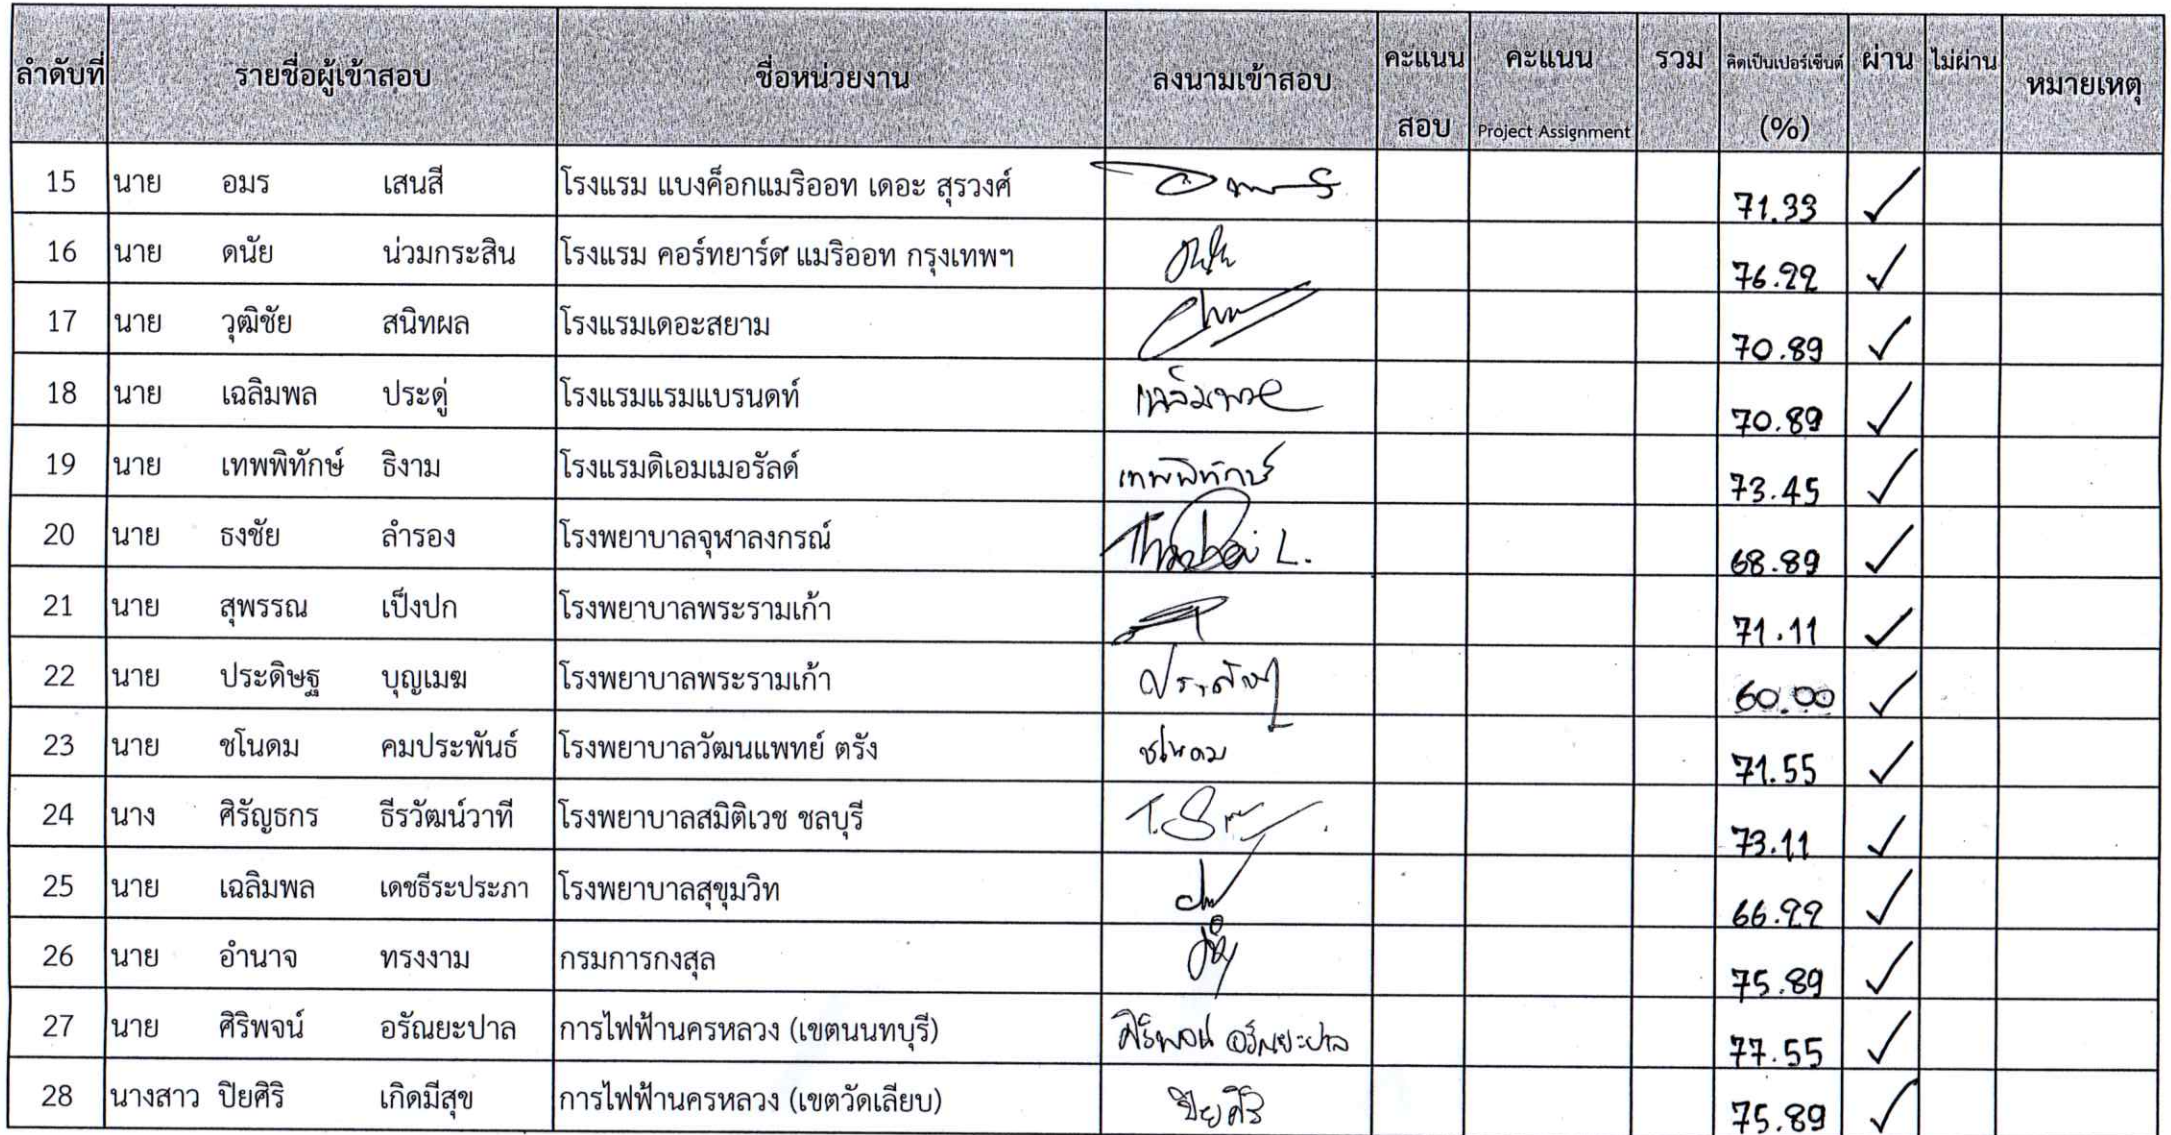 ลำดับที่ รายชื่อผู้เข้าสอบ ชื่อหน่วยงาน ลงนามเข้าสอบ คะแนนสอบ คะแนน Project Assignment รวม คิดเป็นเปอร์เซ็นต์ (%) ผ่าน ไม่ผ่าน หมายเหตุ
15 นาย อมร เสนสี โรงแรม แบงค็อกแมริออท เดอะ สุรวงศ์ 71.33 ✓
16 นาย ดนัย น่วมกระสิน โรงแรม คอร์ทยาร์ด แมริออท กรุงเทพฯ 76.22 ✓
17 นาย วุฒิชัย สนิทผล โรงแรมเดอะสยาม 70.89 ✓
18 นาย เฉลิมพล ประดู่ โรงแรมแรมแบรนดท์ เฉลิมพล 70.89 ✓
19 นาย เทพพิทักษ์ ธิงาม โรงแรมดิเอมเมอรัลด์ เทพพิทักษ์ 73.45 ✓
20 นาย ธงชัย ลำรอง โรงพยาบาลจุฬาลงกรณ์ 68.89 ✓
21 นาย สุพรรณ เป็งปก โรงพยาบาลพระรามเก้า 71.11 ✓
22 นาย ประดิษฐ บุญเมฆ โรงพยาบาลพระรามเก้า 60.00 ✓
23 นาย ชโนดม คมประพันธ์ โรงพยาบาลวัฒนแพทย์ ตรัง ชโนดม 71.55 ✓
24 นาง ศิรัญธกร ธีรวัฒน์วาที โรงพยาบาลสมิติเวช ชลบุรี 73.11 ✓
25 นาย เฉลิมพล เดชธีระประภา โรงพยาบาลสุขุมวิท 66.22 ✓
26 นาย อำนาจ ทรงงาม กรมการกงสุล 75.89 ✓
27 นาย ศิริพจน์ อรัณยะปาล การไฟฟ้านครหลวง (เขตนนทบุรี) ศิริพจน์ อรัณยะปาล 77.55 ✓
28 นางสาว ปิยศิริ เกิดมีสุข การไฟฟ้านครหลวง (เขตวัดเลียบ) ปิยศิริ 75.89 ✓